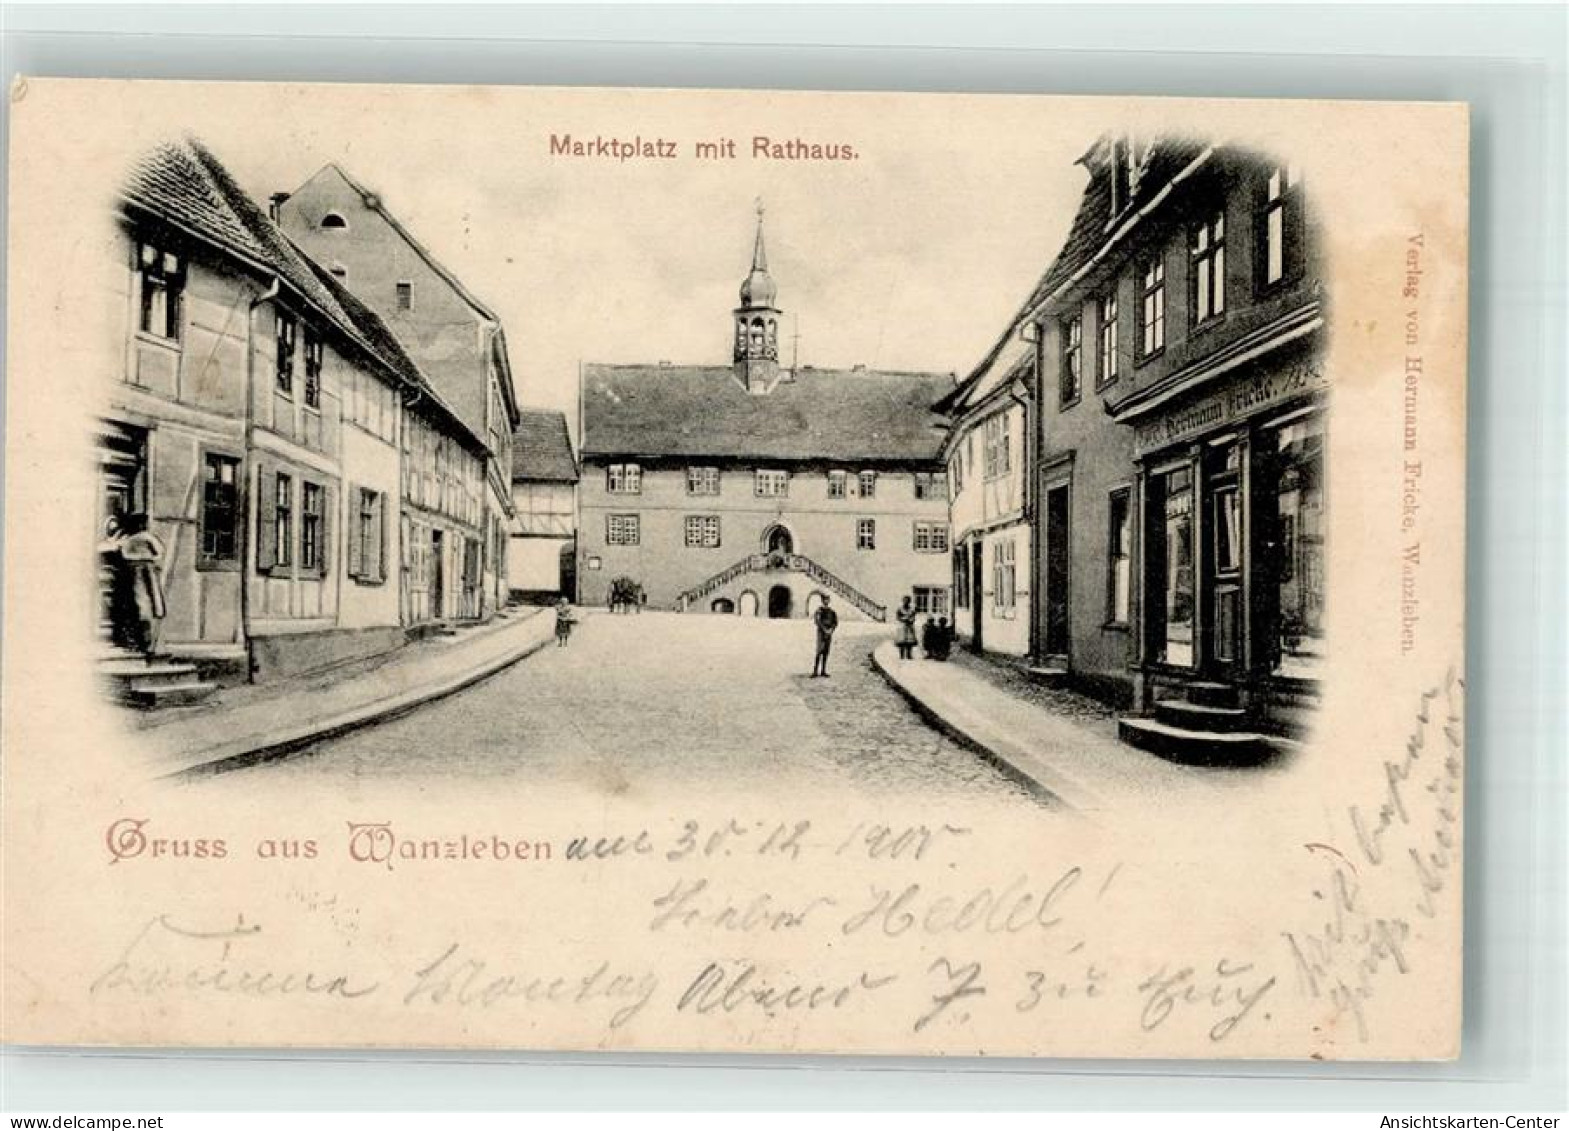 Marktplatz mit Rathaus.
Verlag von Hermann Fricke, Wanzleben.
Hermann Fricke.
Gruss aus Wanzleben am 30. 12. 1900.
Lieber Hedel!
Komme Montag Abend 7. zu Euch.
Mit besten
delcampe.net
Ansichtskarten-Center